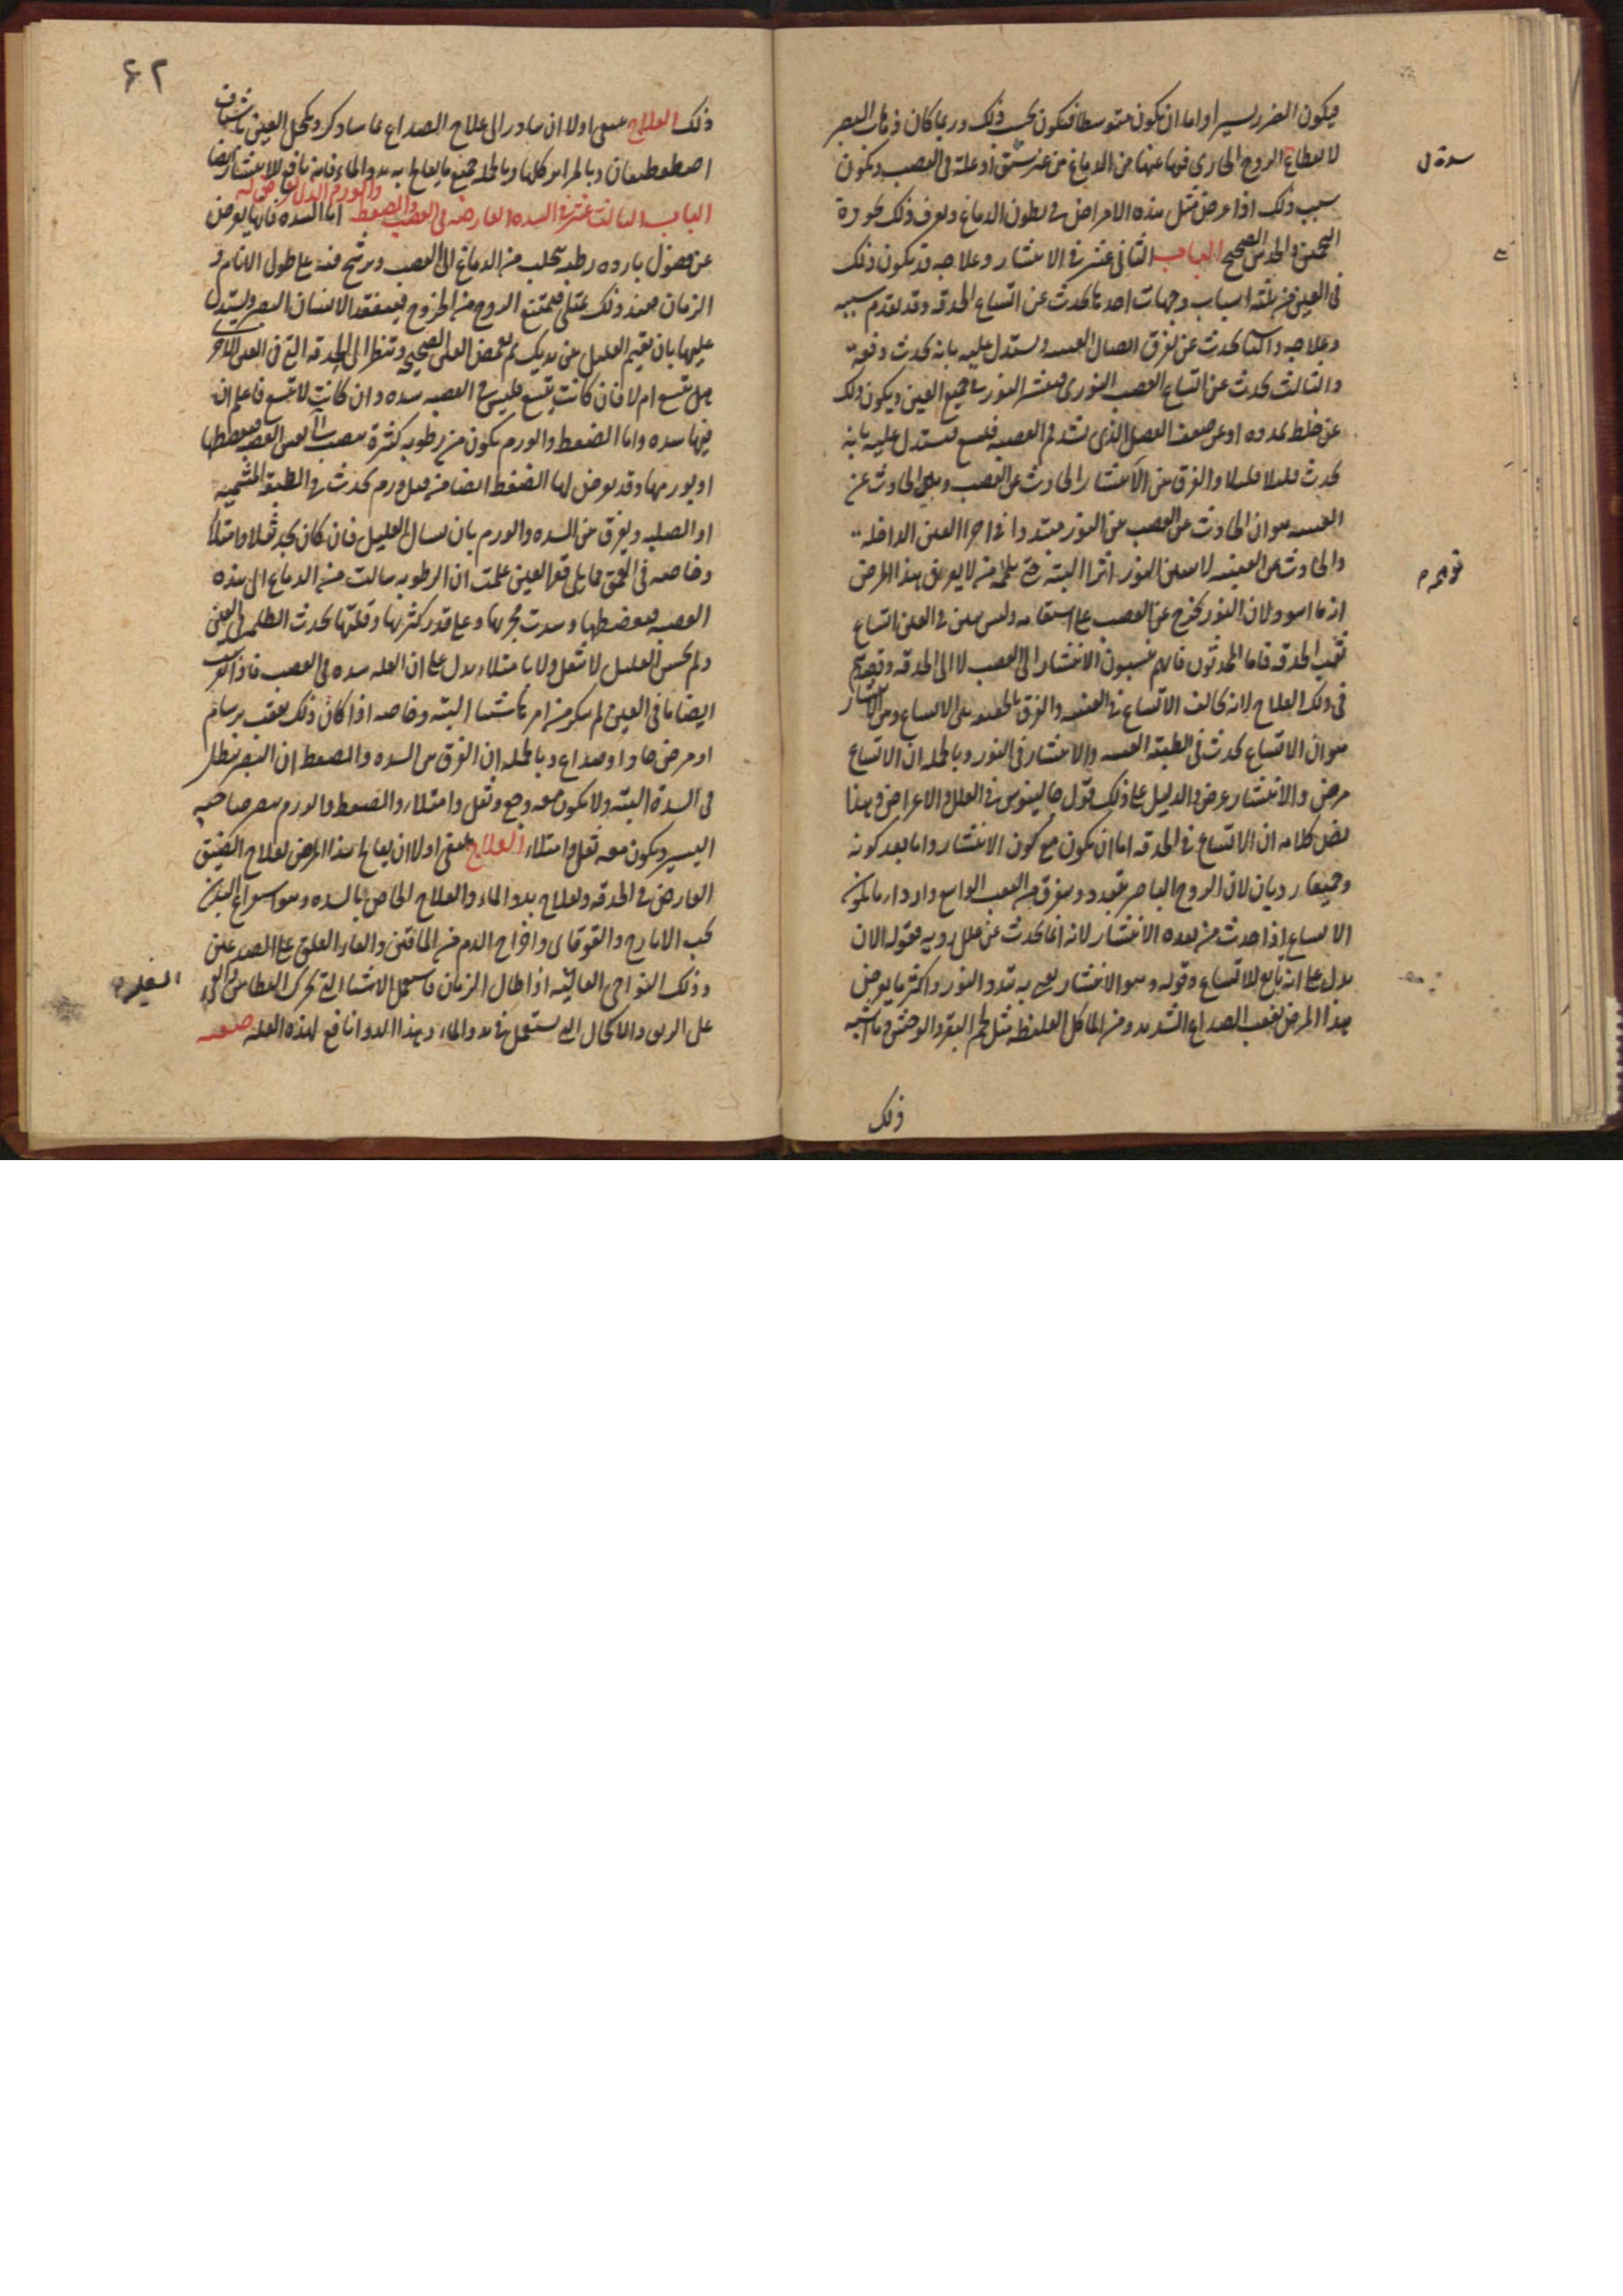 فيكون الضرر يسيرا واما ان يكون متوسطا فيكون بحسب ذلك وربما كان ذهاب البصر
لانقطاع الروح الجارى فيها عنها من الدماغ من غير شق او علة فى العصب ويكون
سبب ذلك اذا عرض مثل هذه الامراض فى بطون الدماغ ويعرف ذلك بجودة
التخمين والحدس الصحيح الباب الثانى عشر فى الانتشار وعلاجه قد يكون ذلك
فى العين من ثلثة اسباب وجهات احدها يحدث عن اتساع الحدقه وقد تقدم سببه
وعلاجه والثانى يحدث عن تفرق اتصال العنبيه ويستدل عليه بانه يحدث دفعة
والثالث يحدث عن اتساع العصب النورى فينتشر النور فى جميع العين ويكون ذلك
عن خلط يمدده او عن ضعف العضل الذى يشد فم العصبه فيتسع فيستدل عليه بانه
يحدث قليلا قليلا والفرق بين الانتشار الحادث عن العصب وبين الحادث عن
العنبيه هو ان الحادث عن العصب من النور متبددا فى اجزاء العين الداخله
والحادث عن العنبيه لا يتبين النور اثرا البته حتى يظن من لا يعرف هذا المرض
انه ماء اسود لان النور يخرج عن العصب على استقامه وليس يتبين فى العين اتساع
ثقب الحدقه فاما المحدثون فانهم ينسبون الانتشار الى العصب لا الى الحدقه وقصدهم
فى ذلك العلاج لانه يخالف الاتساع فى العنبيه والفرق بالحقيقه بين الاتساع وبين الانتشار
هو ان الاتساع يحدث فى الطبقه العنبيه والانتشار فى النور وبالجمله ان الاتساع
مرض والانتشار عرض والدليل على ذلك قول جالينوس فى العلل والاعراض وهذا
نص كلامه ان الاتساع فى الحدقه اما ان يكون مع كون الانتشار واما بعد كونه
وجميعا رديان لان الروح الباصر يتبدد ويتفرق من الثقب الواسع واردا ما يكون
الاتساع اذا حدث من بعده الانتشار لانه انما يحدث عن علل رديه فقوله الان
يدل على انه تابع للاتساع وقوله وهو الانتشار يعنى به تبدد النور واكثر ما يعرض
هذا المرض بعقب الصداع الشديد ومن الماكل الغليظه مثل لحم البقر والوحش وما اشبه
ذلك
٤٢
ذلك العلاج ينبغى اولا ان تبادر الى علاج الصداع بما ساذكره ويكحل العين باشياف
اصطفطيقان وبالمراير كلها وبالجمله جميع ما يعالج به بدو الماء فانه نافع للانتشار ايضا
الباب الثالث عشر فى السده العارضه فى العصب والضغط والورم الذى يعرض له اما السده فانها تعرض
عن فضول بارده رطبه تتحلب من الدماغ الى العصب وترشح فيه على طول الايام و
الزمان فعند ذلك يمتلى فيمتنع الروح من الخروج فيفتقد الانسان البصر ويستدل
عليها بان تقيم العليل بين يديك ثم تغمض العين الصحيحه وتنظر الى الحدقه التى فى العين الاخرى
هل تتسع ام لا فان كانت تتسع فليس فى العصبه سده وان كانت لا تتسع فاعلم ان
فيها سده واما الضغط والورم يكون من رطوبه كثيرة تنصب الى نفس العصبه فتضغطها
او تورمها وقد يعرض لها الضغط ايضا من قبل ورم يحدث فى الطبقه المشيميه
او الصلبه ويفرق بين السده والورم بان تسال العليل فان كان يجد ثقلا وامتلاء
وخاصه فى العمق مما يلى قعر العين علمت ان الرطوبه سالت من الدماغ الى هذه
العصبه فضغطتها وسدت مجريها وعلى قدر كثرتها وقلتها تحدث الظلمه فى العين
ولم يحس العليل لا بثقل ولا بامتلاء يدل على ان العله سده فى العصب فاذا
ايضا ما فى العين لم ينكر من امرها شيا البته وخاصه اذا كان ذلك بعقب برسام
او مرض حاد او صداع وبالجمله ان الفرق بين السده والضغط ان البصر يبطل
فى السدة البته ولا يكون معه وجع وثقل وامتلاء والضغط والورم يبصر صاحبه
اليسير ويكون معه ثقل وامتلاء العلاج ينبغى اولا ان يعالج هذا المرض بعلاج الضيق
العارض فى الحدقه وبعلاج بدو الماء والعلاج الخاص بالسده وهو استفراغ البدن
بحب الايارج والقوقاى واخراج الدم من الماقين والقاء العلق على الصدغين
ودلك النواحى العاليه اذا طال الزمان فاستعمل الاشياء التى تحرك العطاس والقى
على الريق والاكحال التى تستعمل فى بدو الماء وهذا الدواء نافع لهذه العله صفته